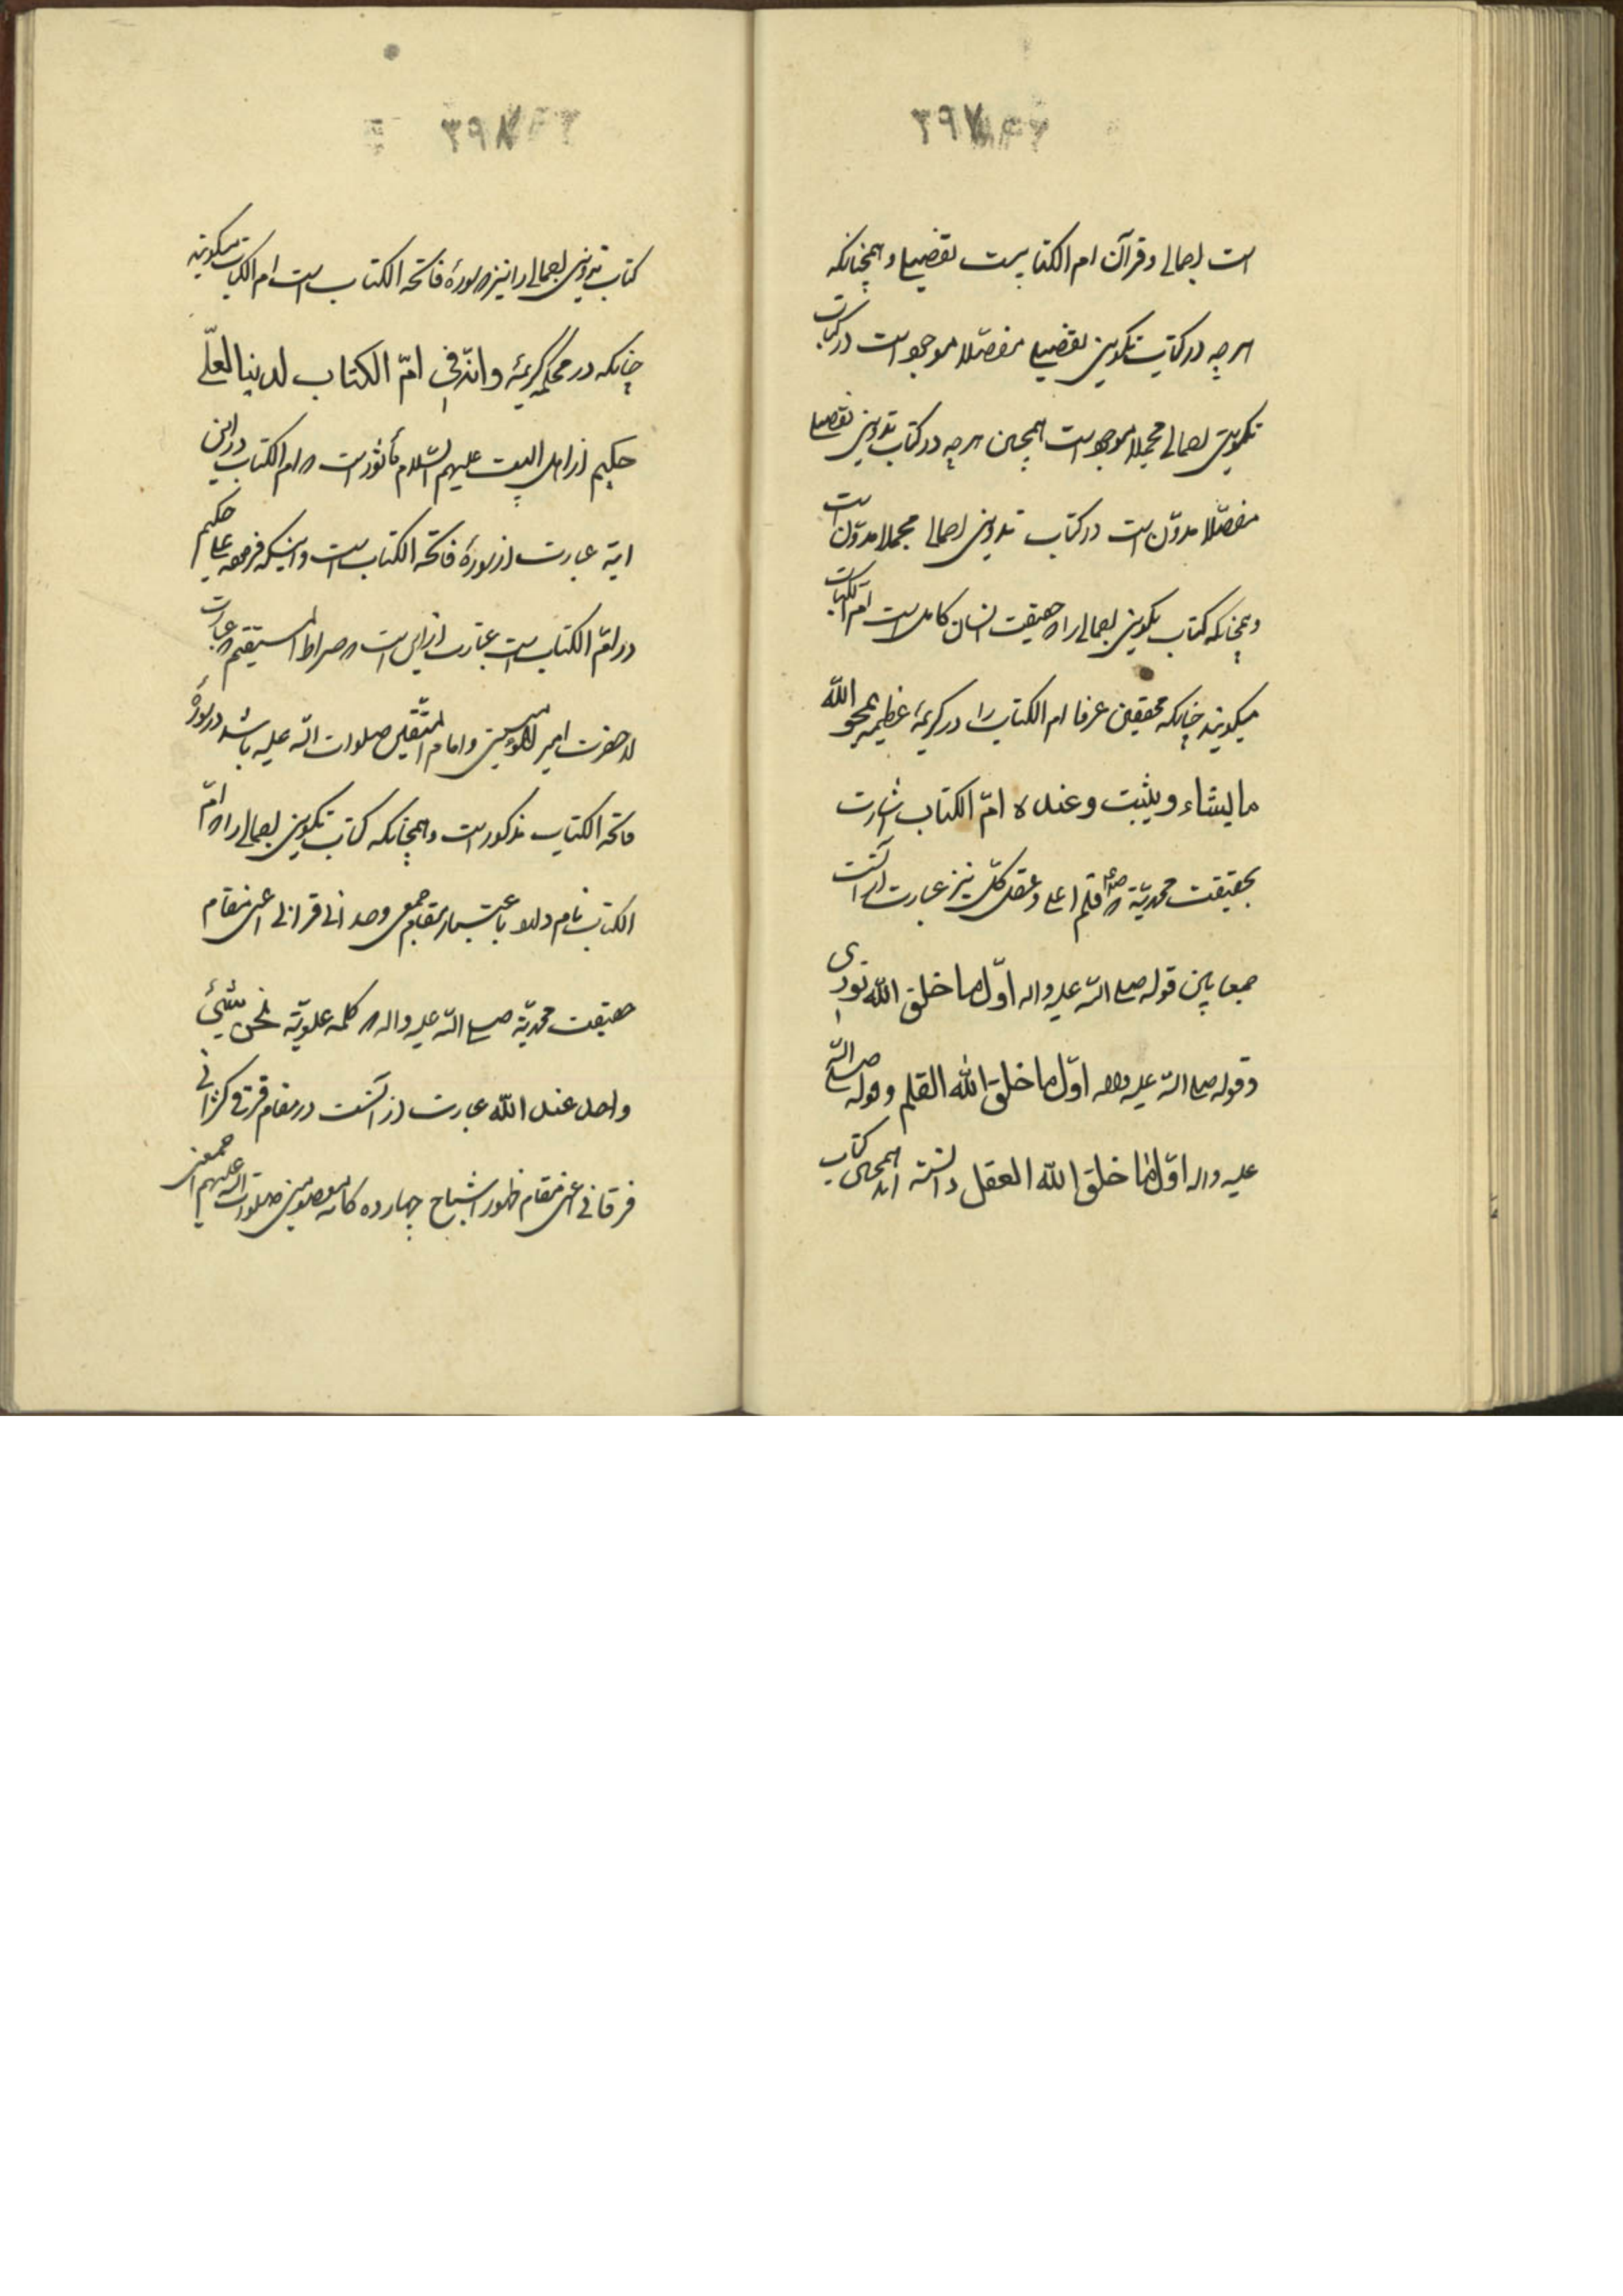 ۳۹۷
است اجمالی و قرآن ام الکتابیست تفصیلی و همچنانکه
هرچه در کتاب تکوینی تفصیلی مفصّلا موجود است در کتاب
تکوینی اجمالی مجملا موجود است همچنین هرچه در کتاب تدوینی تفصیلی
مفصّلا مدوّن است در کتاب تدوینی اجمالی مجملا مدوّن است
و همچنانکه کتاب تکوینی اجمالی را که حقیقت انسان کامل است ام الکتاب
میکویند چنانکه محققین عرفا ام الکتاب را در کریمهٔ عظیمه یمحو الله
ما یشاء و یثبت و عنده امّ الکتاب اشارت
بحقیقت محمدیّة که قلم اعلی و عقل کلّ نیز عبارت از آنست
جمعا بین قوله صلی الله علیه واله اوّل ما خلق الله نوری
و قوله صلی الله علیه واله اوّل ما خلق الله القلم و قوله صلی الله
علیه واله اوّل ما خلق الله العقل دانسته اند همچنین کتاب
۳۹۸
کتاب تدوینی اجمالی را نیز که سورهٔ فاتحة الکتاب است ام الکتاب میکویند
چنانکه در محکمهٔ کریمهٔ و انّه فی امّ الکتاب لدینا لعلّی
حکیم از اهل البیت علیهم السّلام مأثور است که ام الکتاب در این
ایة عبارت از سورهٔ فاتحة الکتاب است و اینکه فرموده علی حکیم
در امّ الکتاب است عبارت از این است که صراط المستقیم که عبارت
از حضرت امیر المؤمنین و امام المتّقین صلوات الله علیه باشد در سورهٔ
فاتحة الکتاب مذکور است و همچنانکه کتاب تکوینی اجمالی را که امّ
الکتاب نام دارد باعتبار مقام جمعی وحدانی قرانی اعنی مقام
حقیقت محمدیّة صلی الله علیه واله که کلمه علویّة نحن شیئ
واحد عند الله عبارت از آنست در مقام فرقی کثرانی
فرقانی اعنی مقام ظهور اشباح چهارده کانه معصومین صلوات الله علیهم اجمعین